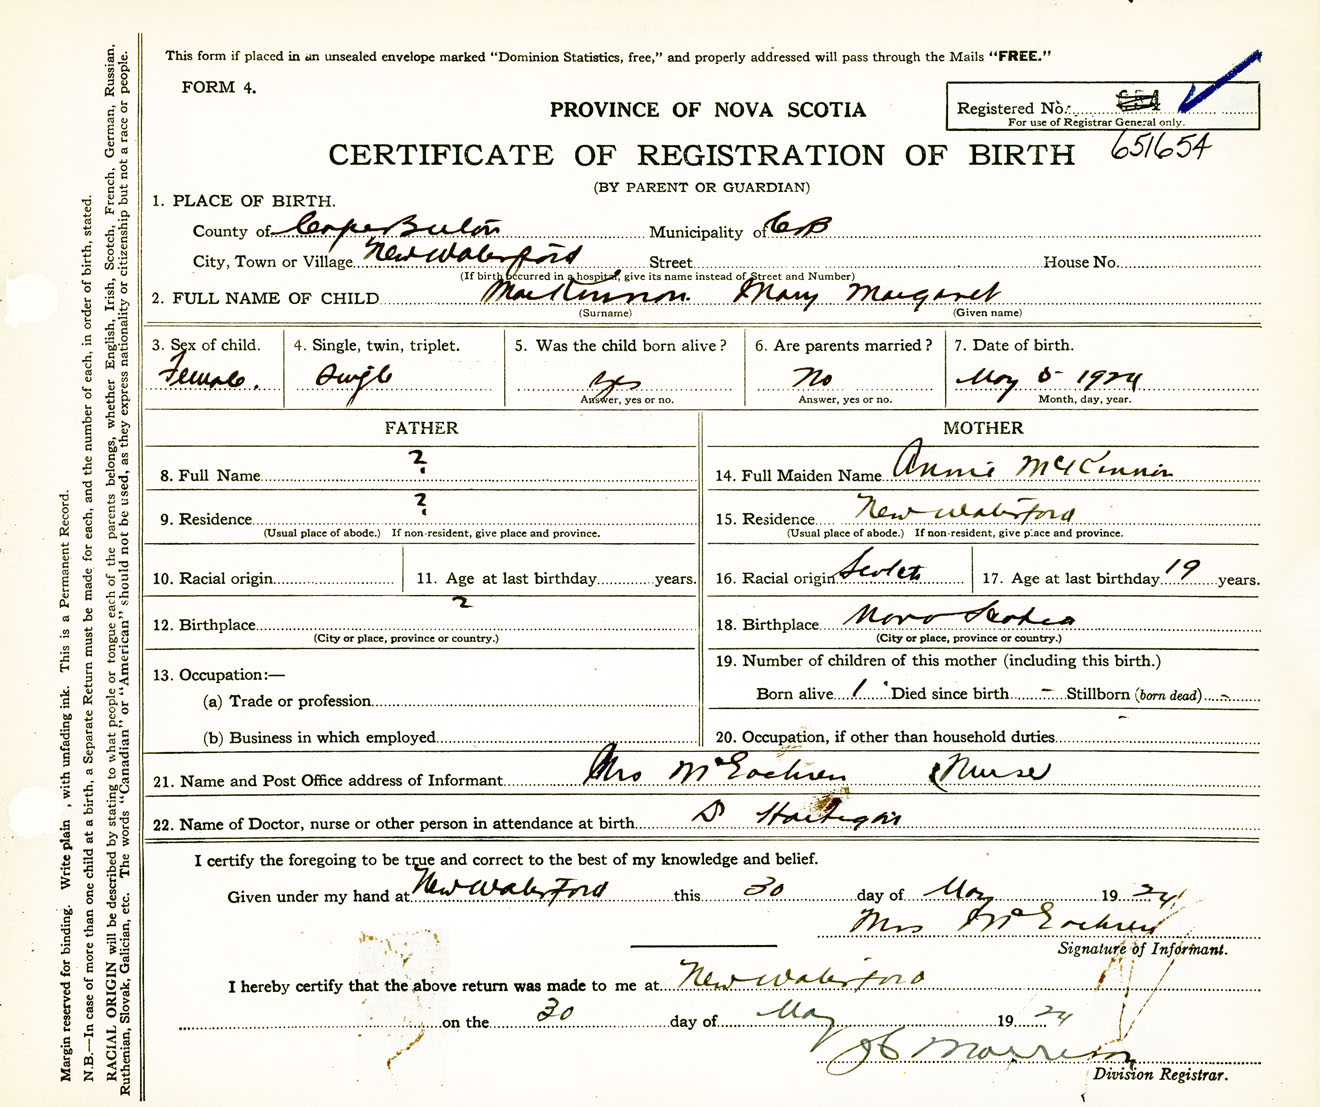 This form if placed in an unsealed envelope marked "Dominion Statistics, free," and properly addressed will pass through the Mails "FREE."
FORM 4.
PROVINCE OF NOVA SCOTIA
Registered No.
For use of Registrar General only.
651654
CERTIFICATE OF REGISTRATION OF BIRTH
(BY PARENT OR GUARDIAN)
1. PLACE OF BIRTH.
County of Cape Breton Municipality of CB
City, Town or Village New Waterford Street House No.
(If birth occurred in a hospital, give its name instead of Street and Number)
2. FULL NAME OF CHILD MacKinnon Mary Margaret
(Surname) (Given name)
3. Sex of child. 4. Single, twin, triplet. 5. Was the child born alive? 6. Are parents married? 7. Date of birth.
Female. Single yes No May 5 1924
Answer, yes or no. Answer, yes or no. Month, day, year.
FATHER MOTHER
8. Full Name ? 14. Full Maiden Name Annie McKinnon
9. Residence ? 15. Residence New Waterford
(Usual place of abode.) If non-resident, give place and province. (Usual place of abode.) If non-resident, give place and province.
10. Racial origin 11. Age at last birthday years. 16. Racial origin Scotch 17. Age at last birthday 19 years.
12. Birthplace ? 18. Birthplace Nova Scotia
(City or place, province or country.) (City or place, province or country.)
13. Occupation:— 19. Number of children of this mother (including this birth.)
(a) Trade or profession Born alive 1 Died since birth - Stillborn (born dead) -
(b) Business in which employed 20. Occupation, if other than household duties -
21. Name and Post Office address of Informant Mrs McEachren (Nurse
22. Name of Doctor, nurse or other person in attendance at birth D Hartigan
I certify the foregoing to be true and correct to the best of my knowledge and belief.
Given under my hand at New Waterford this 30 day of May 1924
Mrs McEachren
Signature of Informant.
I hereby certify that the above return was made to me at New Waterford
on the 30 day of May 1924
Morrison
Division Registrar.
Margin reserved for binding. Write plain, with unfading ink. This is a Permanent Record.
N.B.—In case of more than one child at a birth, a Separate Return must be made for each, and the number of each, in order of birth, stated.
RACIAL ORIGIN will be described by stating to what people or tongue each of the parents belongs, whether English, Irish, Scotch, French, German, Russian,
Ruthenian, Slovak, Galician, etc. The words "Canadian" or "American" should not be used, as they express nationality or citizenship but not a race or people.